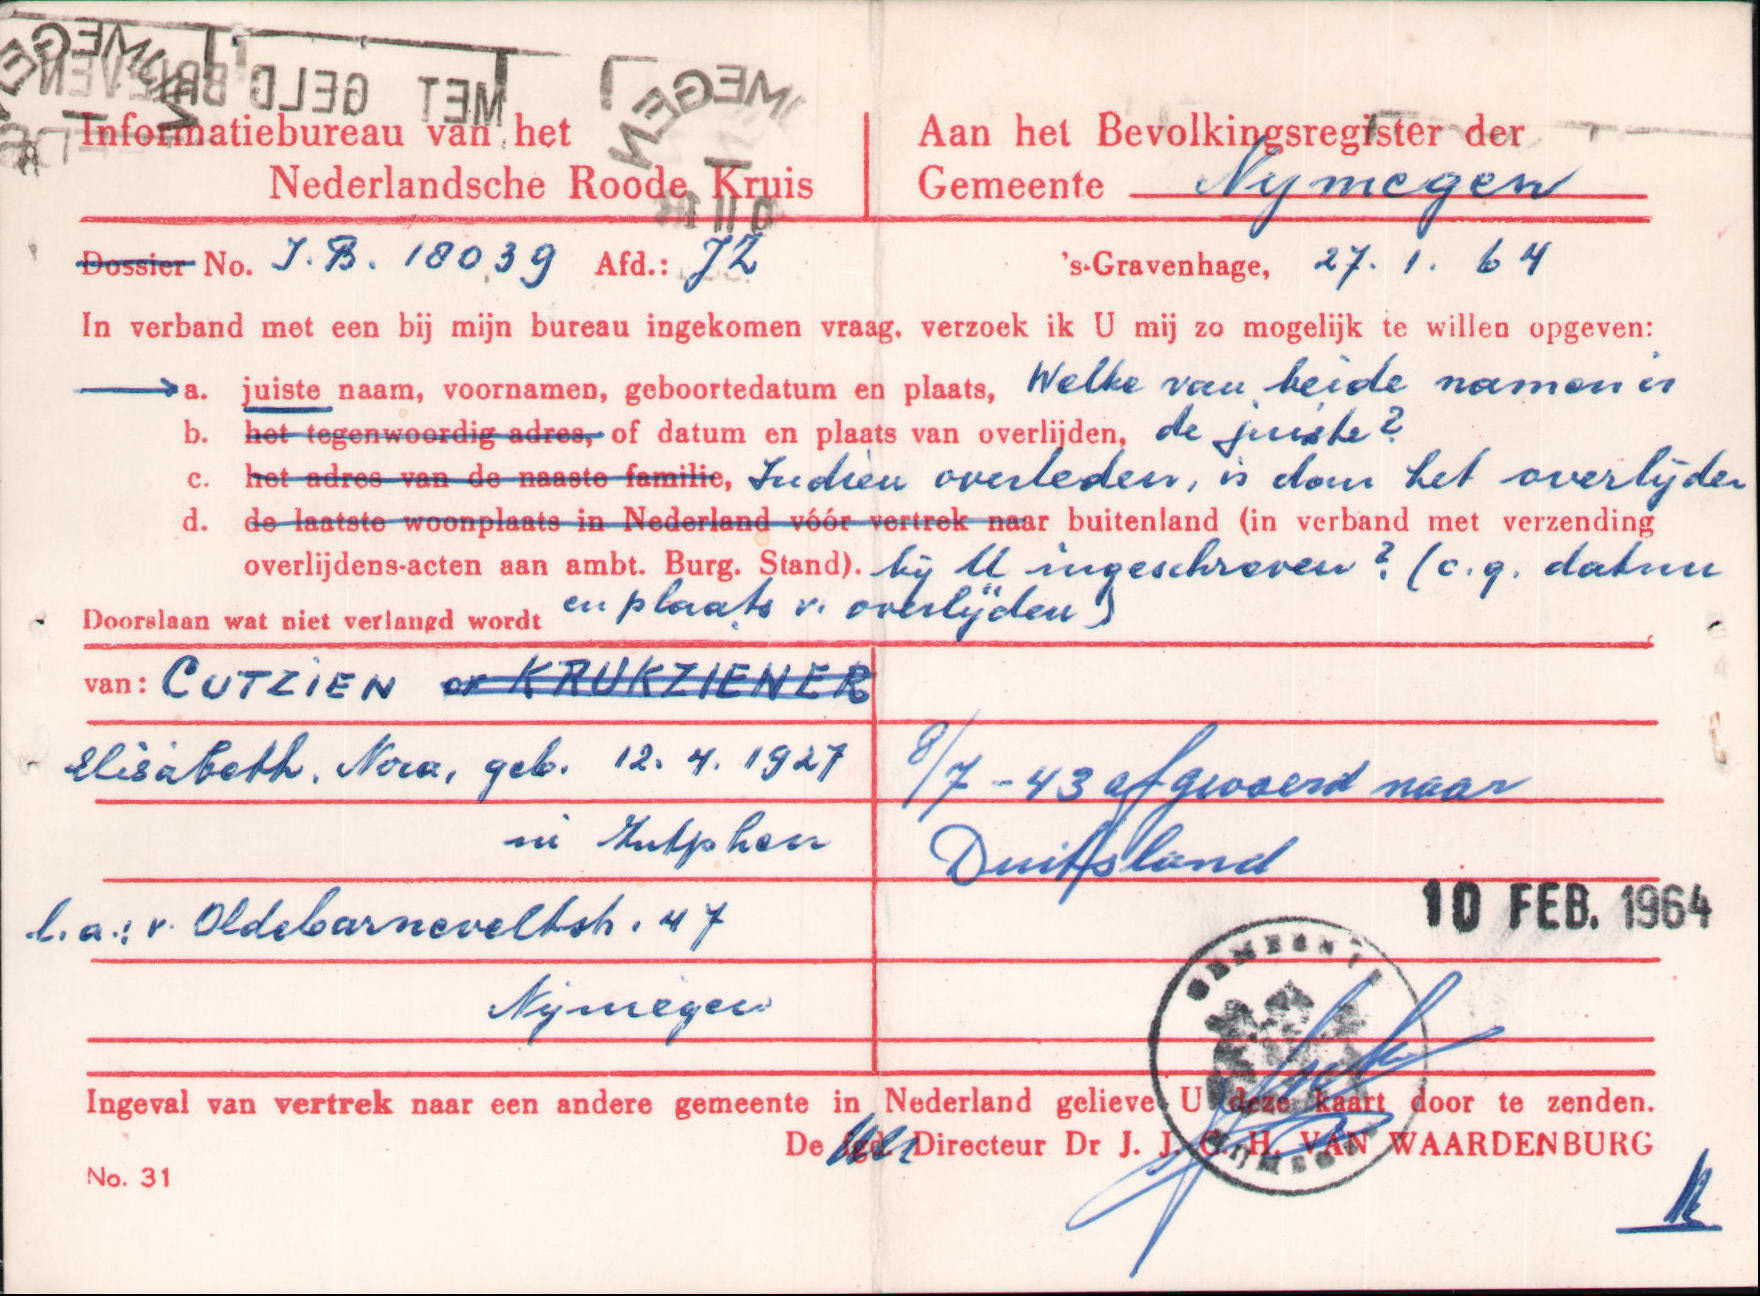 MET GELD BRIEVEN
NIJMEGEN
Informatiebureau van het
Nederlandsche Roode Kruis
Aan het Bevolkingsregister der
Gemeente Nijmegen
Dossier No. J.B. 18039 Afd.: JZ
's-Gravenhage, 27. 1. 64
In verband met een bij mijn bureau ingekomen vraag, verzoek ik U mij zo mogelijk te willen opgeven:
a. juiste naam, voornamen, geboortedatum en plaats, Welke van beide namen is
b. het tegenwoordig adres, of datum en plaats van overlijden, de juiste?
c. het adres van de naaste familie, Indien overleden, is dan het overlijden
d. de laatste woonplaats in Nederland vóór vertrek naar buitenland (in verband met verzending
overlijdens-acten aan ambt. Burg. Stand). bij U ingeschreven? (c.q. datum
Doorslaan wat niet verlangd wordt en plaats v. overlijden)
van: CUTZIEN of KRUKZIENER
Elisabeth, Nora, geb. 12. 4. 1927
in Zutphen
l.a.: v. Oldebarneveltstr. 47
Nijmegen
8/7-43 afgevoerd naar
Duitsland
10 FEB. 1964
GEMEENTE
NIJMEGEN
Ingeval van vertrek naar een andere gemeente in Nederland gelieve U deze kaart door te zenden.
De fgd. Directeur Dr J. J. C. H. VAN WAARDENBURG
No. 31